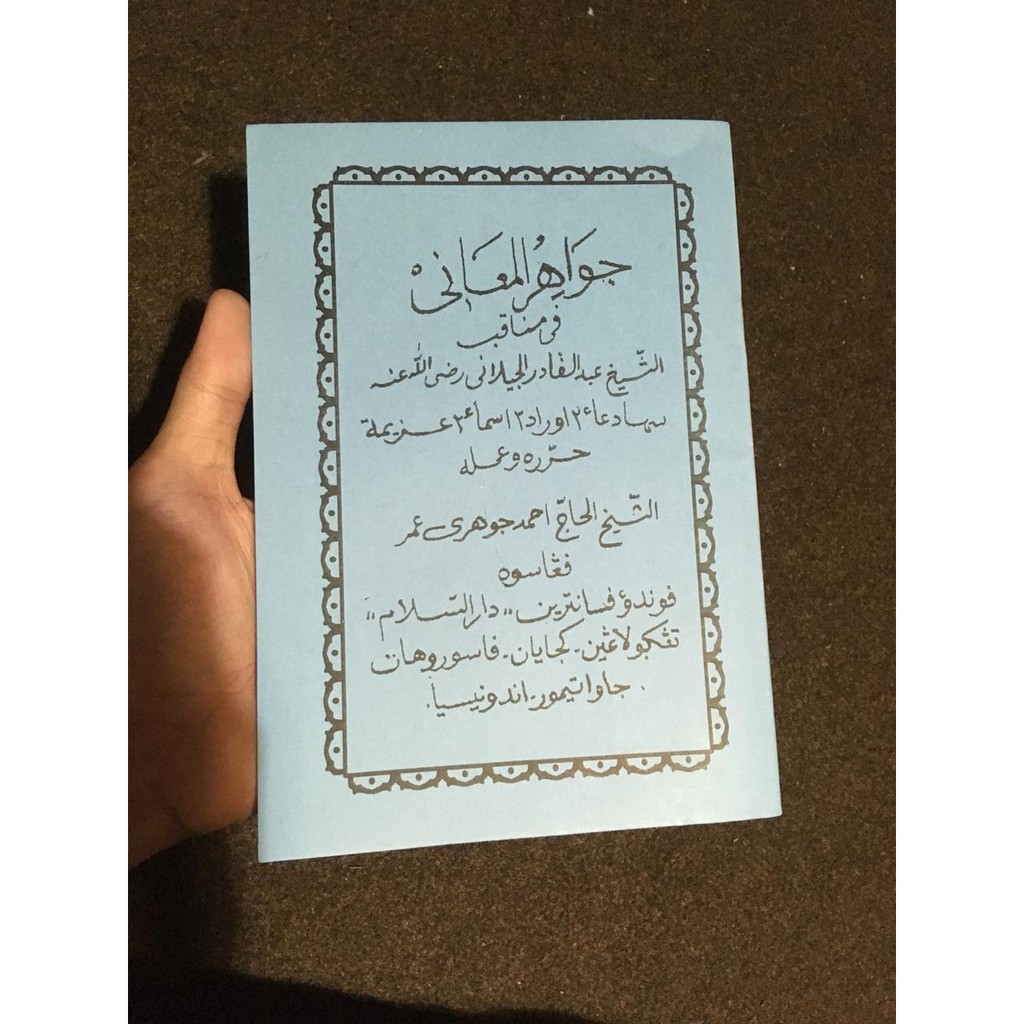 جَوَاهِرُ الْمَعَانِىْ
فى مناقب
الشّيخ عبد القادر الجيلانى رضى اللّٰه عنه
سها دعاء٢ اوراد٢ اسماء٢ عزيمة
حرّره وعمله
الشّيخ الحاجّ احمد جوهرى عمر
فڠاسوه
فوندؤ فسانترين ,,دار السّلام,,
تڠكولاڠين - كجايان - فاسوروهان
. جاوا تيمور - اندونيسيا .